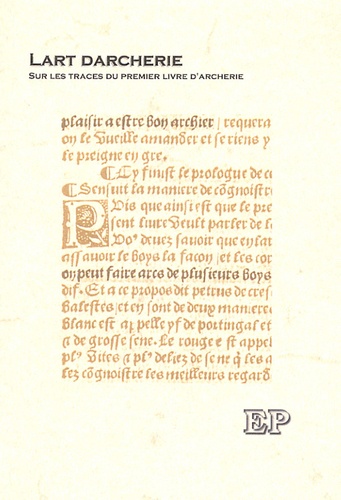 LART DARCHERIE
SUR LES TRACES DU PREMIER LIVRE D'ARCHERIE
plaisir a estre bon archier / requera
on le vueille amander et se riens y
le preigne en gre.
¶ Cy finist le prologue de c
¶ Sensuit la maniere de cõgnoistre
PUis que ainsi est que le pre
sent livre veult parler de l
Vo⁹ devez savoir que en lar
assavoir le boys la façon / et les cor
on peut faire arcs de plusieurs boys
dif. Et a ce propos dit petrus de cres
balestes / et en sont de deux maniere
blanc est ap pelle yf de portingal et
de grosse sene. Le rouge est appel
pl⁹ vites pl⁹ deliez de sene q̃ les a
lez cõgnoistre les meilleurs regard
EP